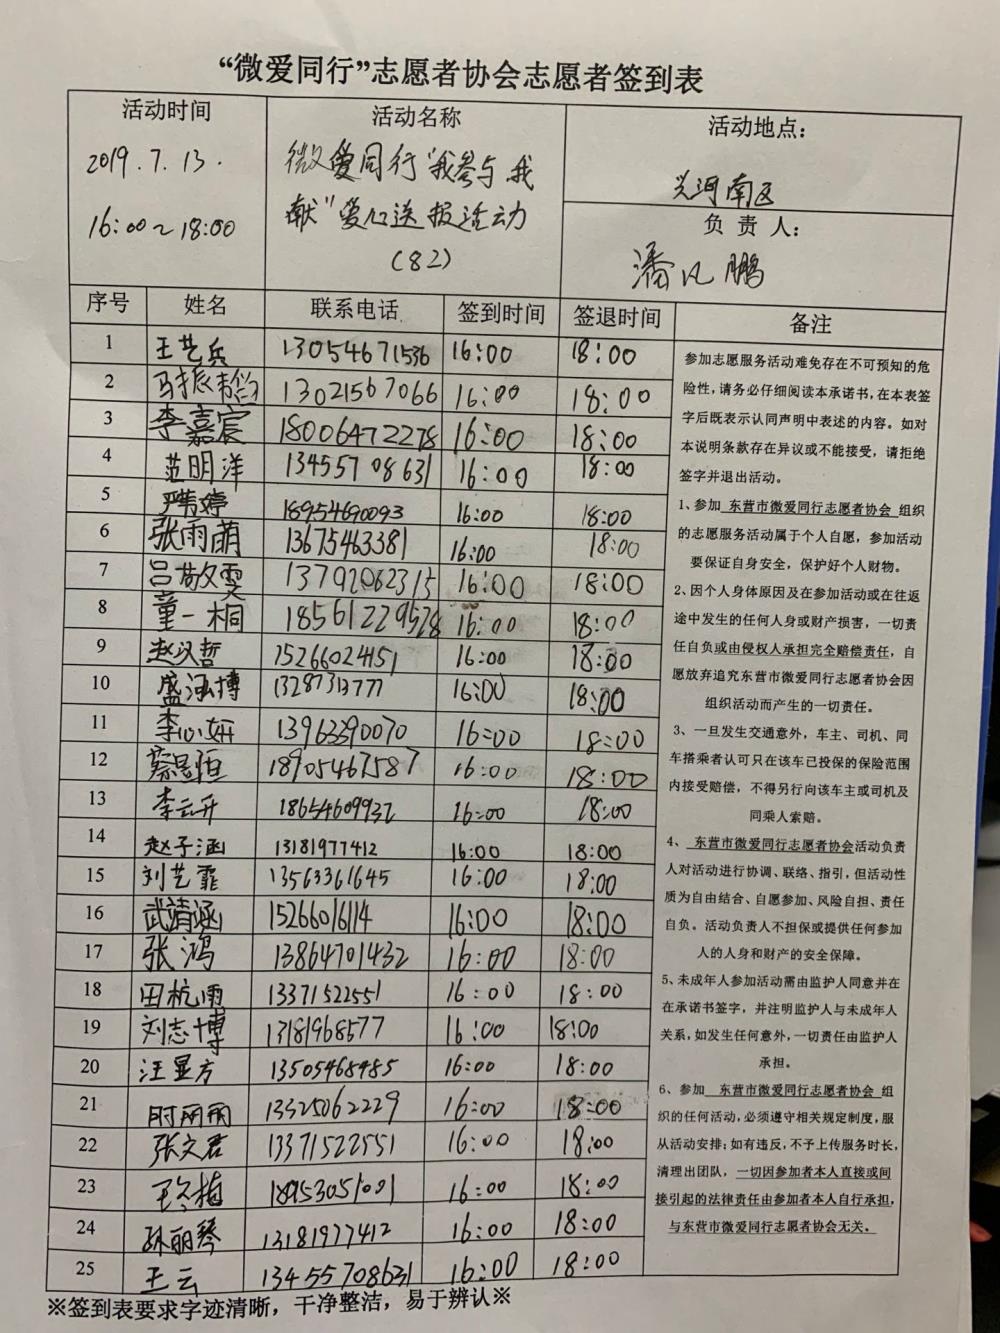 “微爱同行”志愿者协会志愿者签到表
活动时间
2019.7.13.
16:00~18:00
活动名称
微爱同行“我参与 我
献”爱心送报活动
(82)
活动地点:
兴河南区
负 责 人:
潘凡鹏
序号 姓名 联系电话 签到时间 签退时间 备注
1 王艺兵 13054671536 16:00 18:00
2 马振 13021567066 16:00 18:00
3 李嘉宸 18006472278 16:00 18:00
4 范明洋 13455708631 16:00 18:00
5 严 婷 18954690093 16:00 18:00
6 张雨萌 13675463381 16:00 18:00
7 吕敬雯 13792062315 16:00 18:00
8 童一桐 18561229528 16:00 18:00
9 赵汉哲 15266024151 16:00 18:00
10 盛泓博 13287313777 16:00 18:00
11 李心妍 13963390070 16:00 18:00
12 蔡昱恒 18905467587 16:00 18:00
13 李云开 18654609932 16:00 18:00
14 赵子涵 13181977412 16:00 18:00
15 刘艺霏 13563361645 16:00 18:00
16 武靖涵 15266016114 16:00 18:00
17 张鸿 13864701432 16:00 18:00
18 田杭雨 13371522551 16:00 18:00
19 刘志博 13181968577 16:00 18:00
20 汪显方 13505468485 16:00 18:00
21 时丽丽 13325062229 16:00 18:00
22 张文君 13371522551 16:00 18:00
23 梅 18953051001 16:00 18:00
24 孙丽琴 13181977412 16:00 18:00
25 王云 13455708631 16:00 18:00
参加志愿服务活动难免存在不可预知的危
险性,请务必仔细阅读本承诺书,在本表签
字后既表示认同声明中表述的内容。如对
本说明条款存在异议或不能接受,请拒绝
签字并退出活动。
1、参加 东营市微爱同行志愿者协会 组织
的志愿服务活动属于个人自愿,参加活动
要保证自身安全,保护好个人财物。
2、因个人身体原因及在参加活动或在往返
途中发生的任何人身或财产损害,一切责
任自负或由侵权人承担完全赔偿责任,自
愿放弃追究东营市微爱同行志愿者协会因
组织活动而产生的一切责任。
3、一旦发生交通意外,车主、司机、同
车搭乘者认可只在该车已投保的保险范围
内接受赔偿,不得另行向该车主或司机及
同乘人索赔。
4、 东营市微爱同行志愿者协会活动负责
人对活动进行协调、联络、指引,但活动性
质为自由结合、自愿参加、风险自担、责任
自负。活动负责人不担保或提供任何参加
人的人身和财产的安全保障。
5、未成年人参加活动需由监护人同意并在
在承诺书签字,并注明监护人与未成年人
关系,如发生任何意外,一切责任由监护人
承担。
6、参加 东营市微爱同行志愿者协会 组
织的任何活动,必须遵守相关规定制度,服
从活动安排;如有违反,不予上传服务时长,
清理出团队,一切因参加者本人直接或间
接引起的法律责任由参加者本人自行承担,
与东营市微爱同行志愿者协会无关。
※签到表要求字迹清晰,干净整洁,易于辨认※